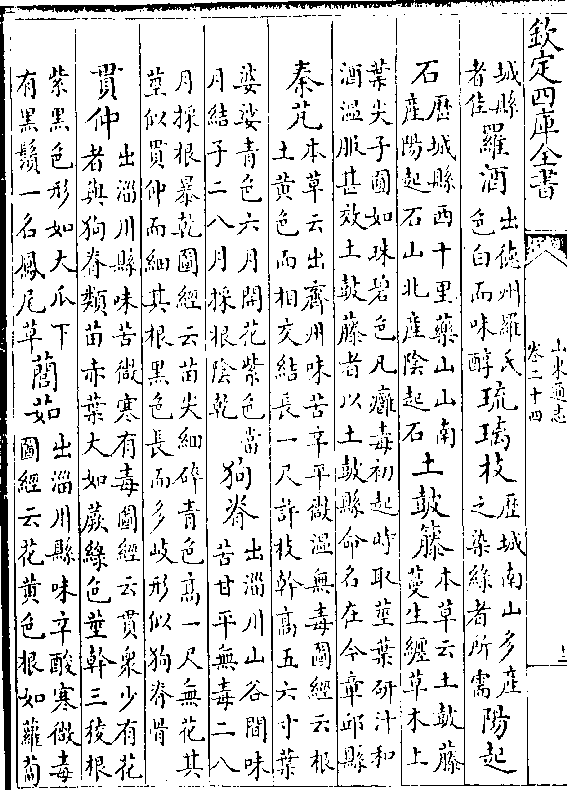 欽定四庫全書
山東通志
卷二十四
城縣者佳 羅酒 出德州羅氏色白而味醇 琉璃枝 歷城南山多產之染綠者所需 陽起
石 歷城縣西十里藥山山南產陽起石山北產陰起石 土鼓藤 本草云土鼓藤蔓生纏草木上
葉尖子圓如珠碧色凡癰毒初起時取莖葉研汁和
酒溫服甚效土鼓藤者以土鼓縣命名在今章邱縣
秦艽 本草云出齊州味苦辛平微溫無毒圖經云根土黄色而相交結長一尺許枝幹高五六寸葉
婆娑青色六月開花紫色當月結子二八月採根陰乾 狗脊 出淄川山谷間味苦甘平無毒二八
月採根暴乾圖經云苗尖細碎青色高一尺無花其
莖似貫仲而細其根黑色長而多歧形似狗脊骨
貫仲 出淄川縣味苦微寒有毒圖經云貫衆少有花者與狗脊類苗赤葉大如蕨綠色莖幹三稜根
紫黑色形如大爪下有黑鬚一名鳳尾草 䕡茹 出淄川縣味辛酸寒微毒圖經云花黄色根如蘿蔔